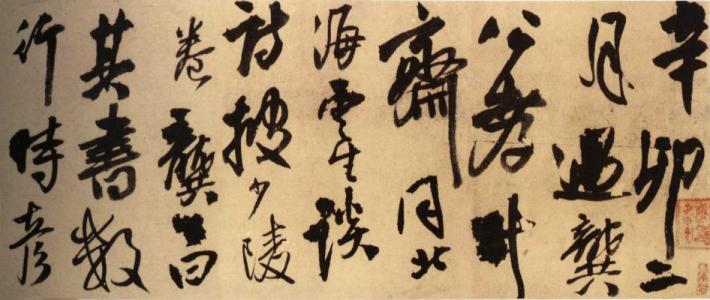 辛卯二
月過龔
公孝升
齋同北
海雲生談
詩搜少陵
卷龔曰
其書數
行時彥